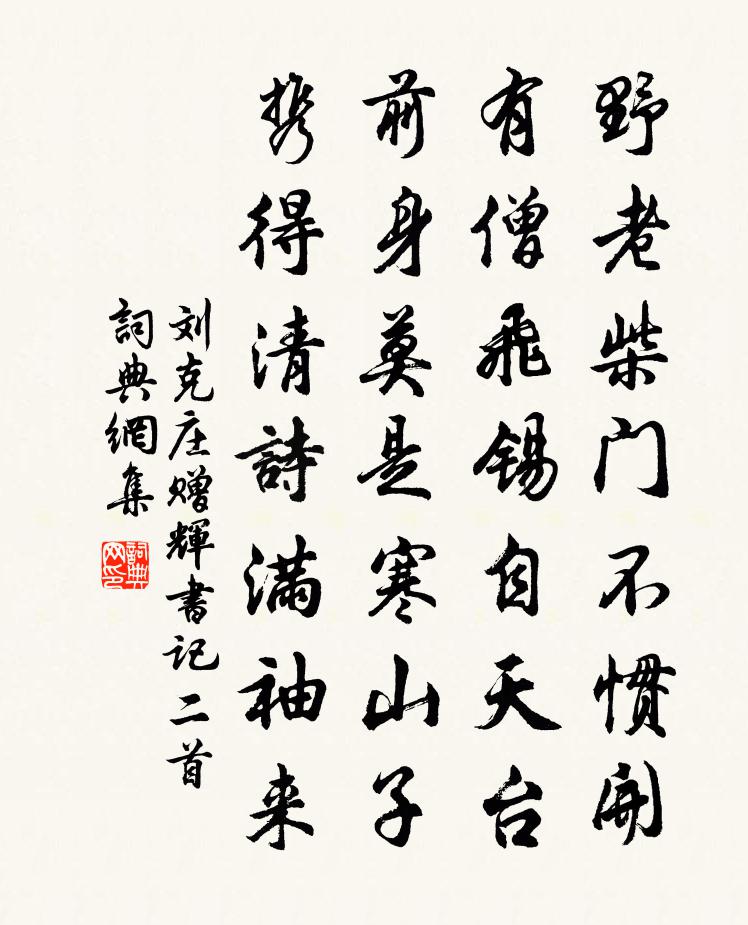 野老柴门不惯開
有僧飛錫自天台
前身莫是寒山子
携得清詩滿袖来
刘克庄赠輝書记二首
詞典網集
詞典网印